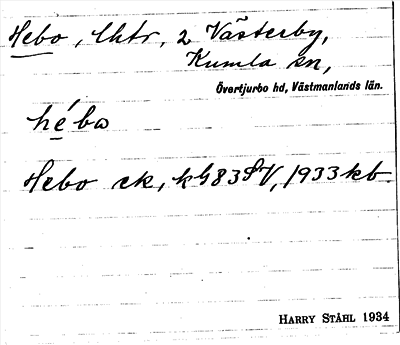 Hebo, lhtr, 2 Västerby,
Kumla sn,
Övertjurbo hd, Västmanlands län.
hé̱bω
Hebo ek, kG83SV, 1933 kb.
HARRY STÅHL 1934